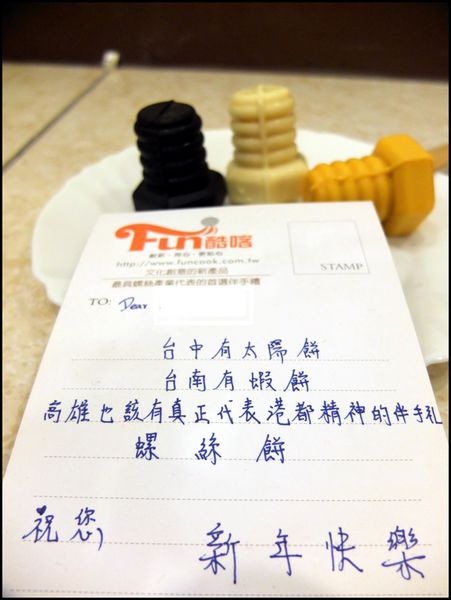 Fun酷喀
創新、用心、更貼心
http://www.funcook.com.tw
文化創意的新產品
最具螺絲產業代表的首選伴手禮
STAMP
TO: Dear
台中有太陽餅
台南有蝦餅
高雄也該有真正代表港都精神的伴手礼
螺絲餅
祝您,
新年快樂